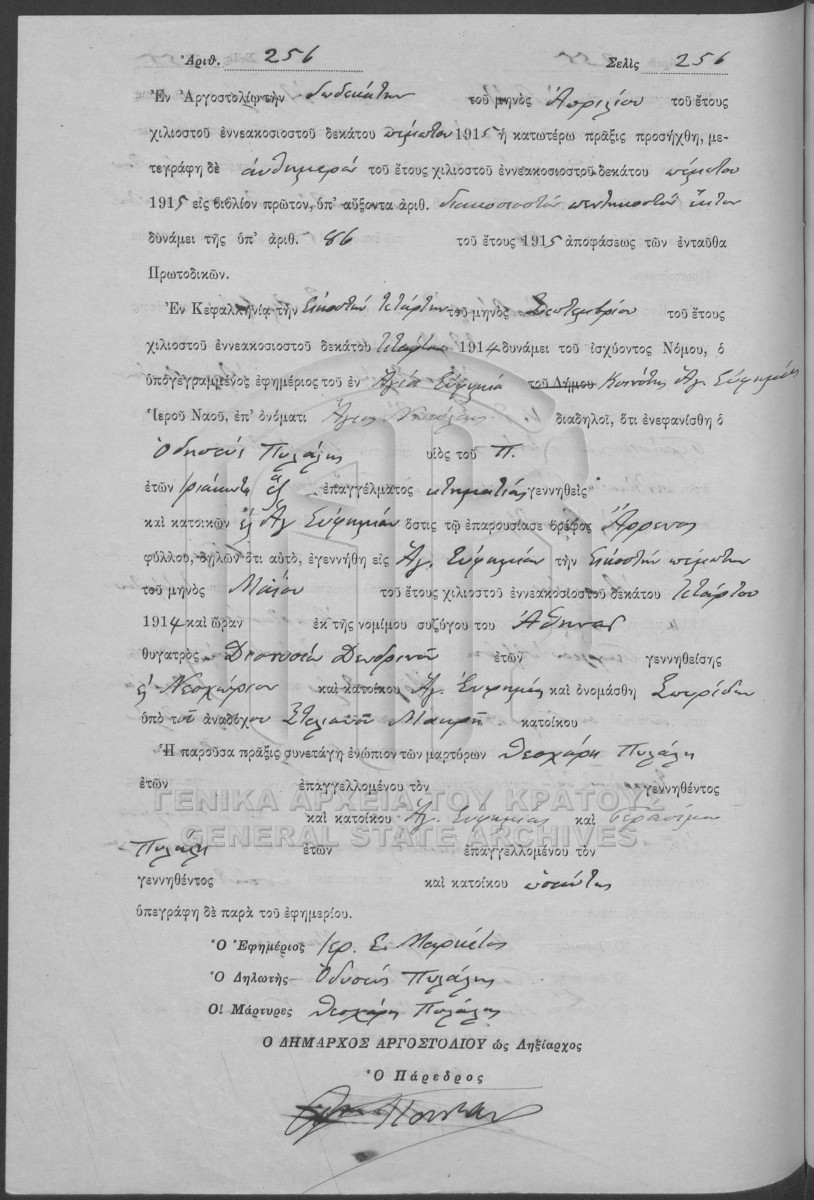 Ἀριθ. 256 Σελὶς 256
Ἐν Ἀργοστολίῳ τὴν δωδεκάτην τοῦ μηνὸς Ἀπριλίου τοῦ ἔτους
χιλιοστοῦ ἐννεακοσιοστοῦ δεκάτου πέμπτου 1915 ἡ κατωτέρω πρᾶξις προσήχθη, με-
τεγράφη δὲ αὐθημερὸν τοῦ ἔτους χιλιοστοῦ ἐννεακοσιοστοῦ δεκάτου πέμπτου
1915 εἰς βιβλίον πρῶτον, ὑπ' αὔξοντα ἀριθ. διακοσιοστὸν πεντηκοστὸν ἕκτον
δυνάμει τῆς ὑπ' ἀριθ. 86 τοῦ ἔτους 1915 ἀποφάσεως τῶν ἐνταῦθα
Πρωτοδικῶν.
Ἐν Κεφαλληνίᾳ τὴν Εἰκοστὴν τετάρτην τοῦ μηνὸς Σεπτεμβρίου τοῦ ἔτους
χιλιοστοῦ ἐννεακοσιοστοῦ δεκάτου τετάρτου 1914 δυνάμει τοῦ ἰσχύοντος Νόμου, ὁ
ὑπογεγραμμένος ἐφημέριος τοῦ ἐν Ἁγίᾳ Εὐφημίᾳ τοῦ Δήμου Κοινότης Ἁγ. Εὐφημίας
Ἱεροῦ Ναοῦ, ἐπ' ὀνόματι Ἅγιος Νικόλαος διαδηλοῖ, ὅτι ἐνεφανίσθη ὁ
Ὀδησεὺς Πυλάλης υἱὸς τοῦ Π.
ἐτῶν τριάκοντα ἓξ ἐπαγγέλματος κτηματίας γεννηθεὶς
καὶ κατοικῶν εἰς Ἁγ. Εὐφημίαν ὅστις τῷ ἐπαρουσίασε βρέφος Ἄρρενος
φύλλου, δηλῶν ὅτι αὐτὸ, ἐγεννήθη εἰς Ἁγ. Εὐφημίαν τὴν Εἰκοστὴν πέμπτην
τοῦ μηνὸς Μαΐου τοῦ ἔτους χιλιοστοῦ ἐννεακοσιοστοῦ δεκάτου τετάρτου
1914 καὶ ὥραν ἐκ τῆς νομίμου συζύγου του Ἀθηνᾶς
θυγατρὸς Διονυσίου Δενδρινοῦ ἐτῶν γεννηθείσης
εἰς Νεοχώριον καὶ κατοίκου Ἁγ. Εὐφημίας καὶ ὀνομάσθη Σπυρίδων
ὑπὸ τοῦ ἀναδόχου Στυλιανοῦ Μακρῆ κατοίκου
Ἡ παροῦσα πρᾶξις συνετάγη ἐνώπιον τῶν μαρτύρων Θεοχάρη Πυλάλη
ἐτῶν ἐπαγγελλομένου τὸν γεννηθέντος
ΓΕΝΙΚΑ ΑΡΧΕΙΑ ΤΟΥ ΚΡΑΤΟΥΣ
καὶ κατοίκου Ἁγ. Εὐφημίας καὶ Γερασίμου
GENERAL STATE ARCHIVES
Πυλάλη ἐτῶν ἐπαγγελλομένου τὸν
γεννηθέντος καὶ κατοίκου ὡσαύτως
ὑπεγράφη δὲ παρὰ τοῦ ἐφημερίου.
Ὁ Ἐφημέριος Ἱερ. Σ. Μαρκέτος
Ὁ Δηλωτὴς Ὀδυσεὺς Πυλάλης
Οἱ Μάρτυρες Θεοχάρης Πυλάλης
Ο ΔΗΜΑΡΧΟΣ ΑΡΓΟΣΤΟΛΙΟΥ ὡς Ληξίαρχος
Ὁ Πάρεδρος